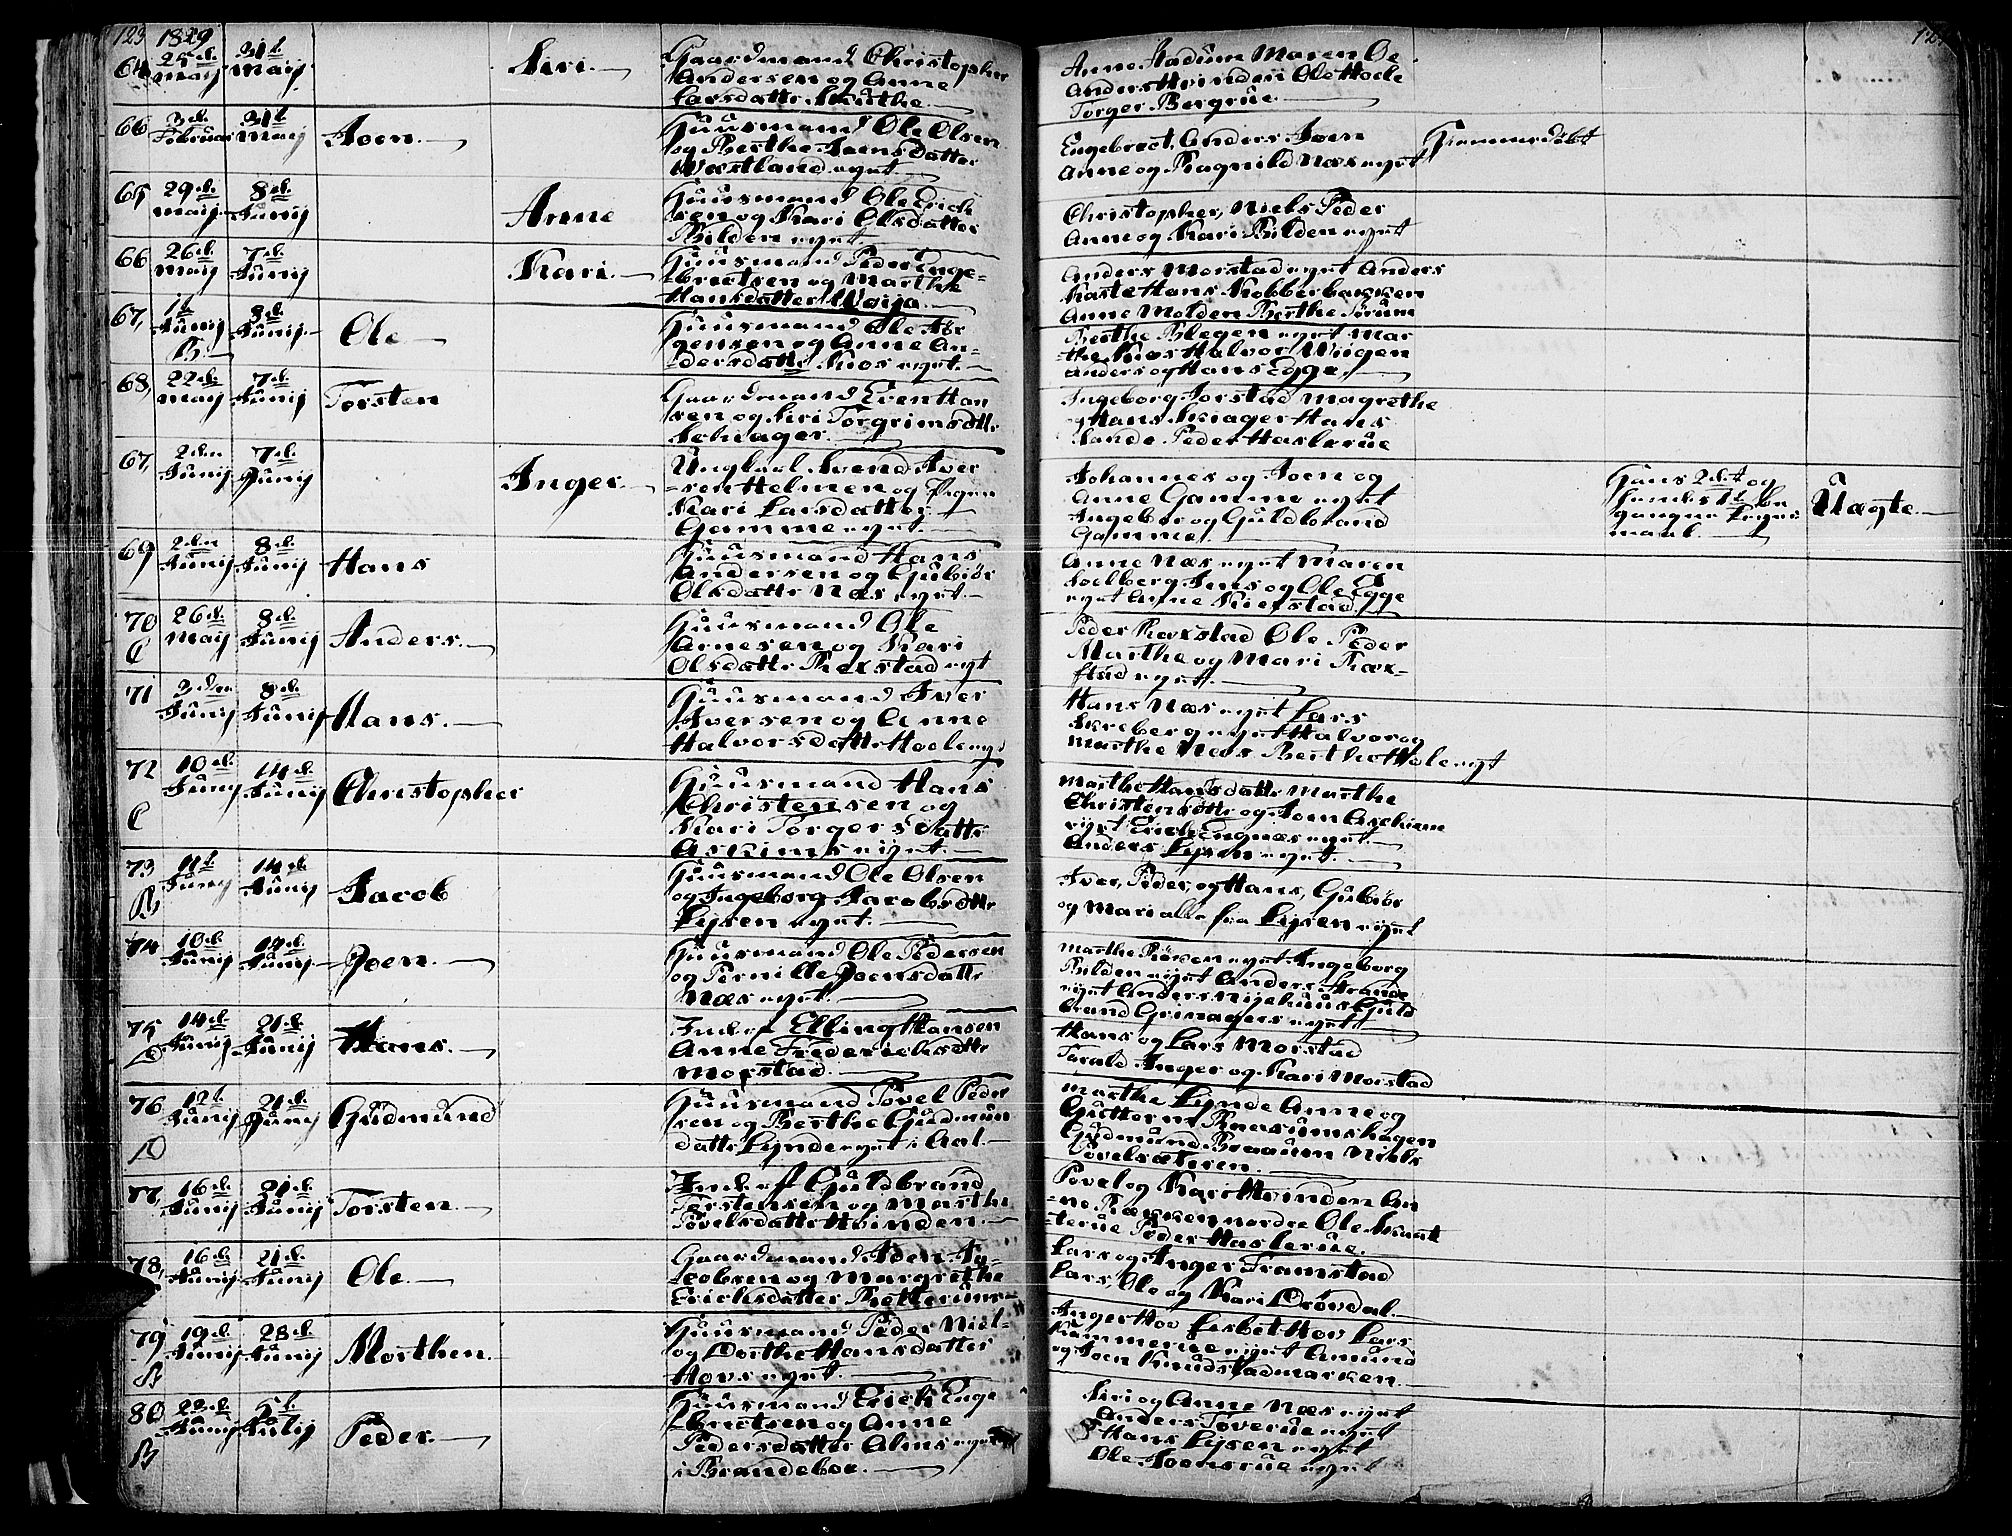 123 1829
64 25d. Maij 31t. Maij Siri.
Gaardmand Christopher
Andersen og Anne
Larsdattr Lurthe
Anne Stadum Maren Oe
Anders Hvinden Ole Hoele
Torger Bergrue.
66 3d. Februar 31t. Maij Joen.
Huusmand Ole Olsen
og Berthe Joensdatter
Westland eyet.
Engebrect, Anders Joen
Anne og Ragnild Næs eyet
Hiemmedøbt
65 29d. Maij 8d. Junij Anne
Huusmand Ole Erich
sen og Kari Olsdatter
Bilden eyet.
Christopher, Niels Peder
Anne og Kari Bilden eyet
66 26d. Maij 7d. Junij Kari.
Huusmand Peder Enge-
bretsen og Marthe
Hansdatter Woija.
Anders Morstad eyet Anders
Raste Hans Kobberbakken
Anne Molden Berthe Sørum
67, 1t. Junij 8d. Junij Ole
B
Huusmand Ole Jør
gensen og Anne An-
dersdattr Kios eyet.
Berthe Blegen eyet Mar
the Kios Halvor Wiigen
Anders og Hans Egge.
68, 22d. Maij 7d. Junij Torsten
Gaardmand Even Han
sen og Siri Torgrimsdttr
Schiager.
Ingeborg Jorstad Magrethe
og Hans Skiager Hans
Sande Peder Haslerue
67, 2den Junij 7d. Junij Inger.
Ungkarl Svend Iver
sen Helmen og Pigen
Kari Larsdatter
Gamme eyet.
Johannes og Joen og
Anne Gamme eyet
Ingebor og Guldbrand
Gamme
Hans 2det og
hendes 1t. be
gangne Leyer
maal.
Uægte.
69 2den Junij 8d. Junij Hans
Huusmand Hans
Andersen og Gubiør
Olsdattr Næs eyet.
Anne Næs eyet Maren
Soelberg Jens og Ole Egge
eyet Anne Kierstad
70 26d. Maij 8d. Junij Anders.
C
Huusmand Ole
Arnesen og Kari
Olsdattr Rækstad eyt
Peder Rækstad Ole Peder
Marthe og Mari Ræk-
stad eyet.
71 3den Junij 8d. Junij Hans.
Huusmand Iver
Iversen og Anne
Halvorsdattr Hoele eyt
Hans Næs eyet Lars
Skreberg eyet Halvor og
Marthe Næs Berthe Hole eyt
72 10d. Juny 14d. Junij Christopher
C
Huusmand Hans
Christensen og
Kari Torgersdattr
Askims eiyet.
Marthe Hansdattr Marthe
Christensdttr og Joen Aschiem
eyet Erich Engnæs eyet.
Anders Lysen eyet.
73 11t. Juny 14d. Junij Jacob
B
Huusmand Ole Olsen
og Ingeborg Jacobsdttr
Lysen eyet.
Iver, Peder, og Hans, Gubiør
og Mari alle fra Lysen eyet
74 10d. Junij 14d. Junij Joen.
Huusmand Ole Pedersen
og Pernille Joensdattr
Næs eyet.
Marthe Røsen eyet Ingeborg
Bilden eyet Anders Strande
eyet Anders Nyehuus Guld
brand Grinagers eyet
75 14d. Junij 21d. Junij Hans.
D
Inderst Elling Hansen
Anne Frederichsdttr
Morstad.
Hans og Lars Morstad
Tarald Inger og Kari Morstad
76 12t. Junij 21d. Junij Gudmund
D
Huusmand Povel Peder
sen og Berthe Gudmun
dattr Lynde eyet i Aal.
Marthe Lynde Anne og
Guttorm Braaumshagen
Gudmund Braaum Niels
Povelsæteren.
77, 16d. Junij 21d. Junij Torsten.
Inderst Guldbrand
Torstensen og Marthe
Povelsdattr Hvinden.
Povel og Kari Hvinden An
ne Ræcken nordre Ole
terue Peder Haslerue.
78, 16d. Junij 21d. Junij Ole.
Gaardmand Joen Ja-
cobsen og Margrethe
Erichsdatter Røtterum
Lars og Inger Framstad
Lars, Ole og Kari Drövdal.
79 19d. Junij 28d. Junij Morthen.
B
Huusmand Peder Niel-
og Dorthe Hansdatter
Hovs eyet.
Inger Hov Lesbet Hov Lars
Kammerue eyet Amund
og Joen Knudstadmarken.
80 22d. Junij 5t. Julij Peder.
B
Huusmand Erich Enge
bretsen og Anne
Pedersdatter Alms eyet
i Brandeboe.
Siri og Anne Næs eyet
Anders Toverue eyet
Hans Lysen eyet
Ole Joensrue eyet